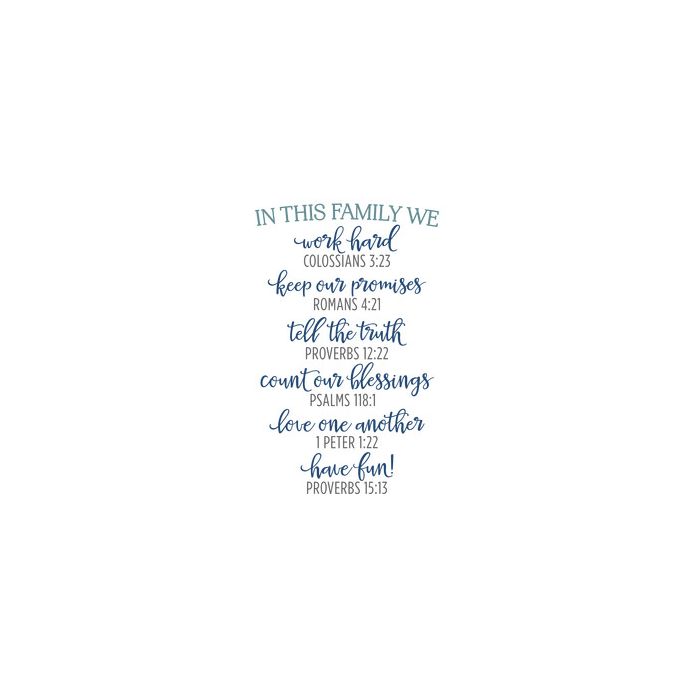 IN THIS FAMILY WE
work hard
COLOSSIANS 3:23
keep our promises
ROMANS 4:21
tell the truth
PROVERBS 12:22
count our blessings
PSALMS 118:1
love one another
1 PETER 1:22
have fun!
PROVERBS 15:13